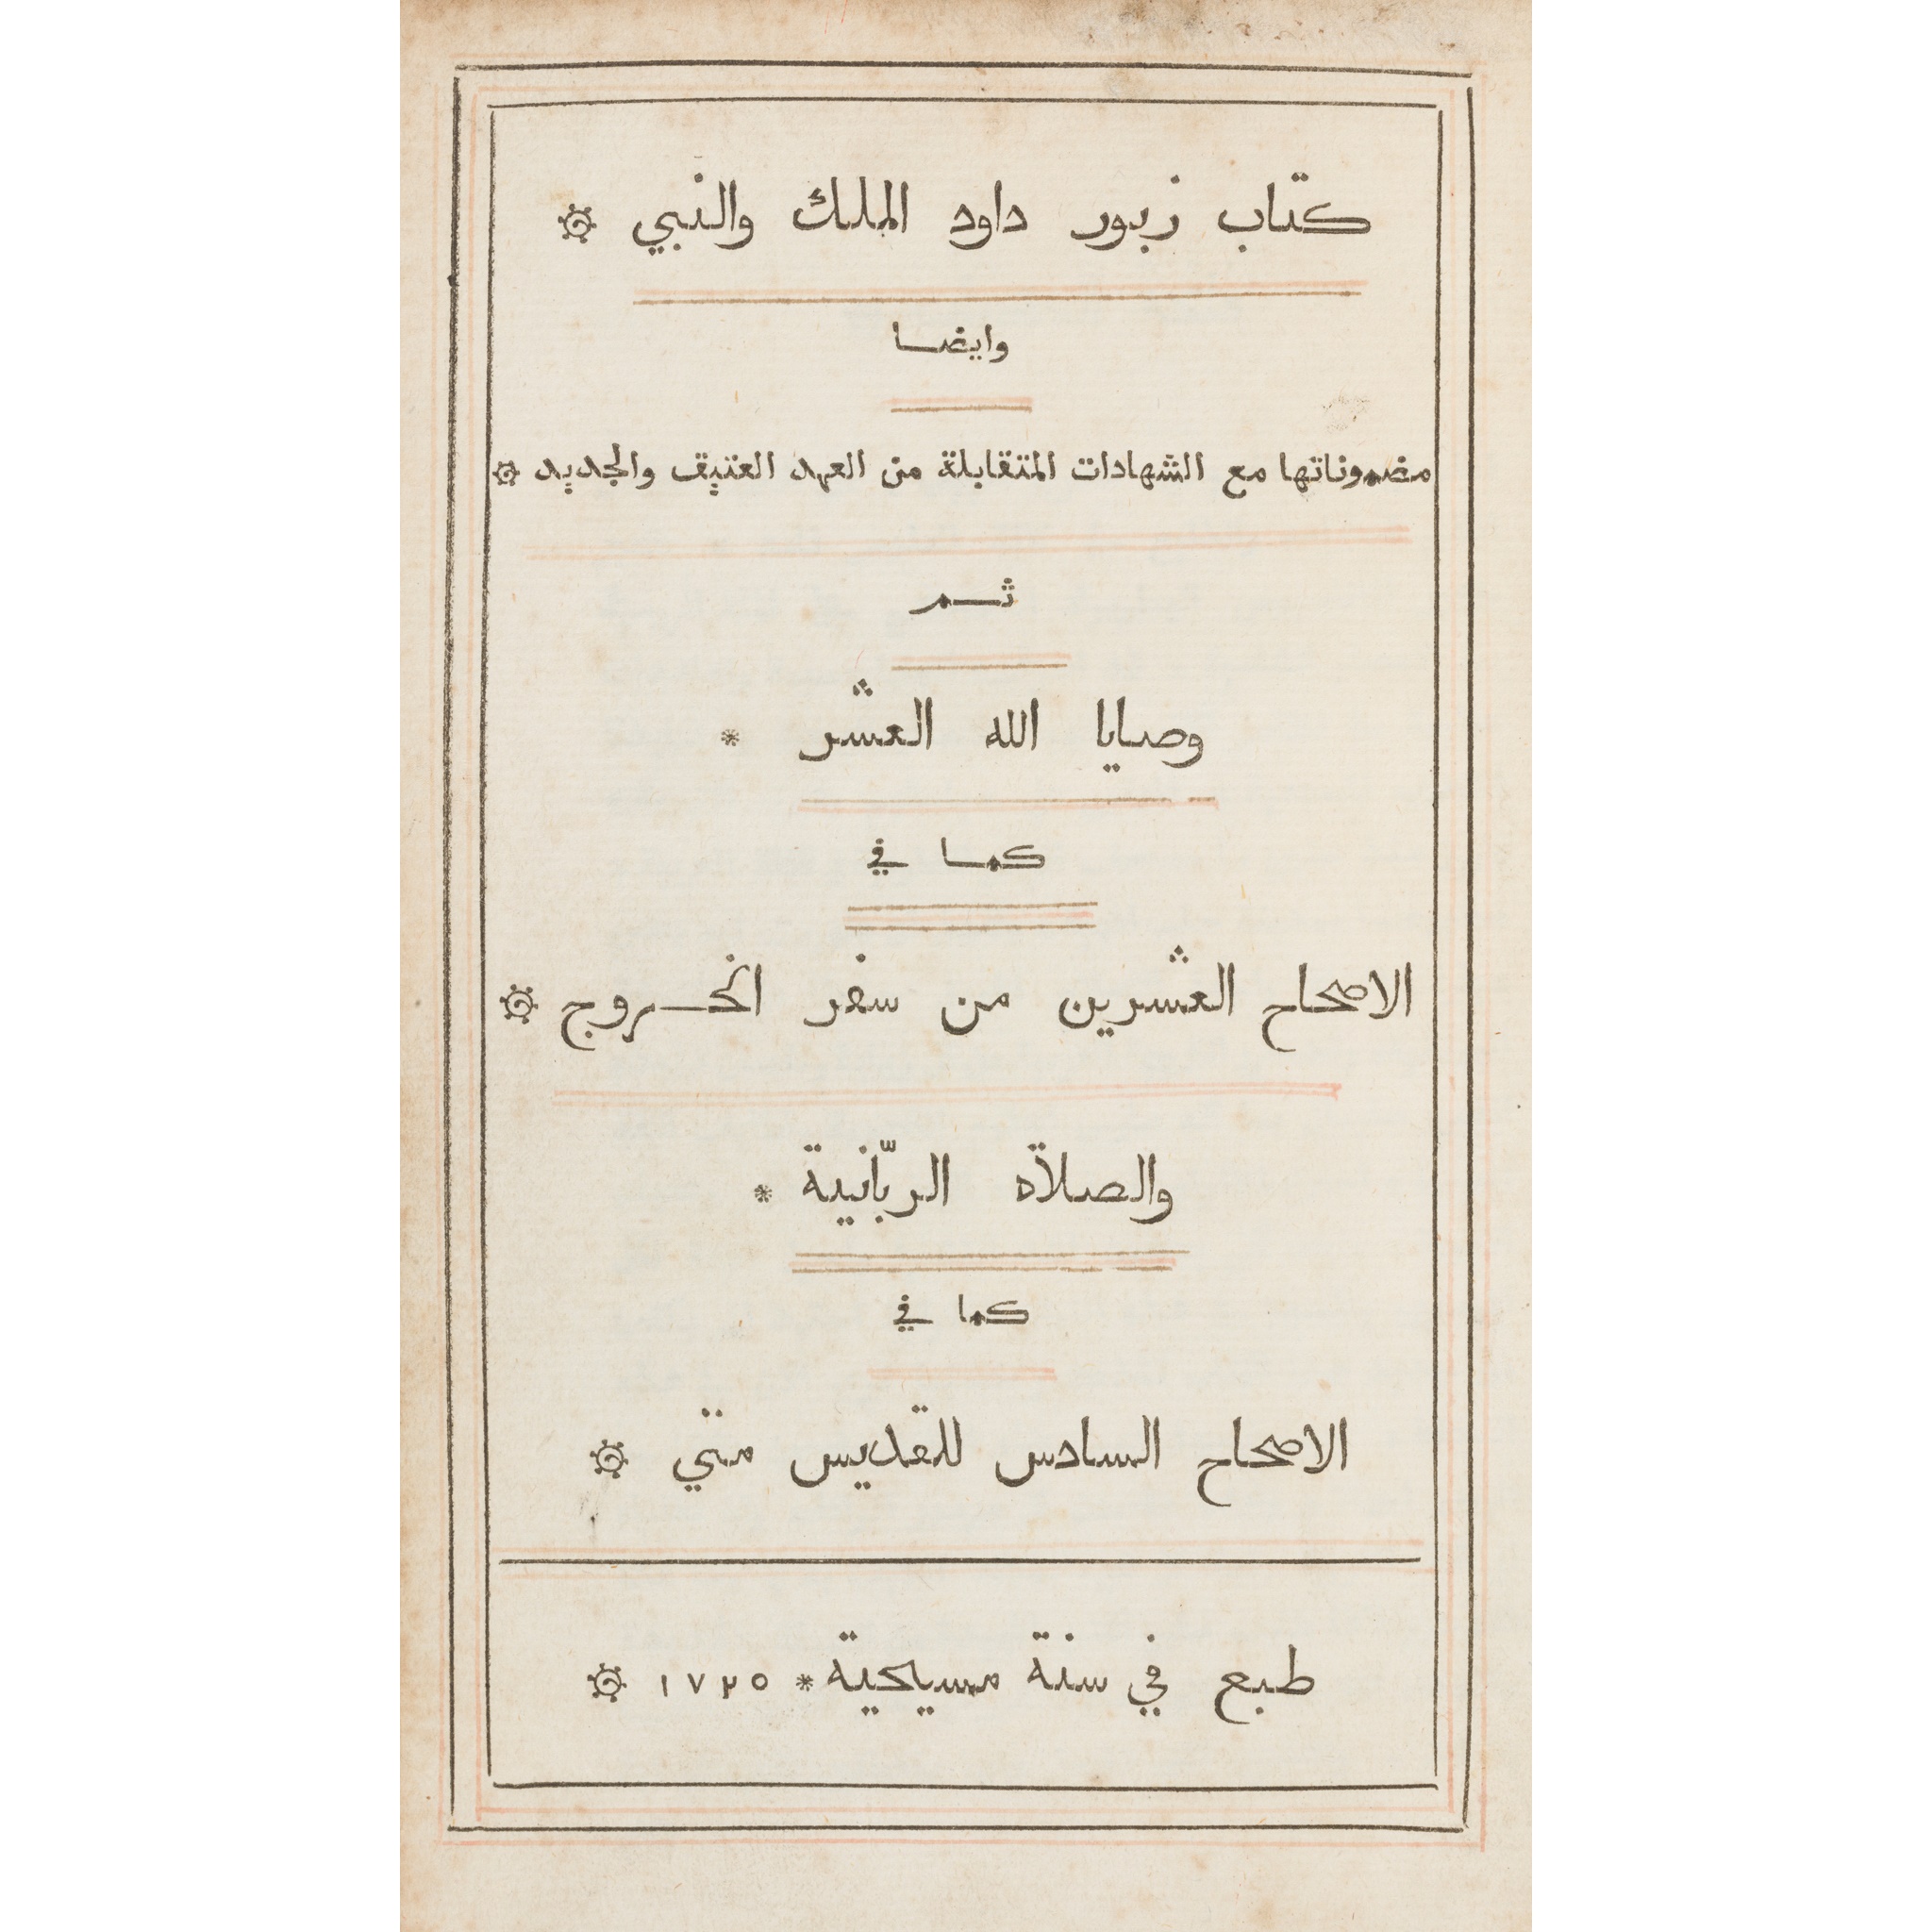 كتاب زبور داود الملك والنبي
وايضا
مضموناتها مع الشهادات المتقابلة من العهد العتيق والجديد
ثم
وصايا الله العشر *
كما في
الاصحاح العشرين من سفر الخروج
والصلاة الربّانية *
كما في
الاصحاح السادس للقديس متي
طبع في سنة مسيحية * ١٧٢٥